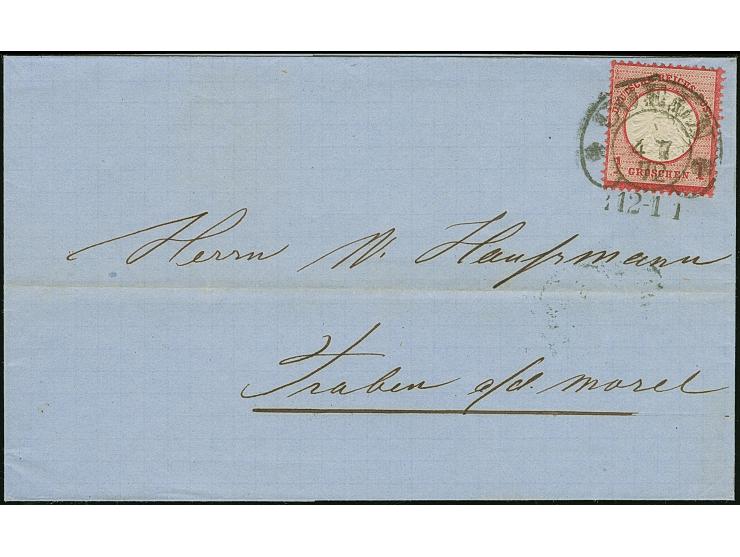 DEUTSCHE REICHS-POST
1 GROSCHEN 1
4 7
72
12-1
Herrn W. Haufsmann
Traben a/d. Mosel